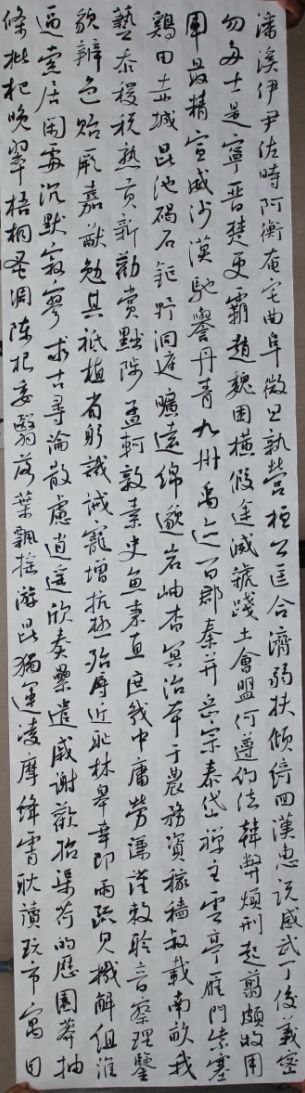 潘溪伊尹佐時阿衡奄宅曲阜微旦孰營桓公匡合濟弱扶傾綺回漢惠説感武丁俊義密
勿多士是寧晉楚更霸趙魏困橫假途滅虢踐土會盟何遵約法韓弊煩刑起翦頗牧用
軍最精宣威沙漠馳譽丹青九州禹迹百郡秦并岳宗泰岱禪主雲亭雁門紫塞
鷄田赤城昆池碣石鉅野洞庭曠遠綿邈岩岫杳冥治本于農務資稼穡俶載南畝我
藝黍稷税熟貢新勸賞黜陟孟軻敦素史魚秉直庶幾中庸勞謙謹敕聆音察理鑒
貌辨色貽厥嘉猷勉其祗植省躬譏誡寵增抗極殆辱近恥林皋幸即兩疏見機解組誰
逼索居閑處沉默寂寥求古尋論散慮逍遥欣奏累遣慼謝歡招渠荷的歷園莽抽
條枇杷晚翠梧桐蚤凋陳根委翳落葉飄摇游昆獨運凌摩絳霄耽讀玩市寓目